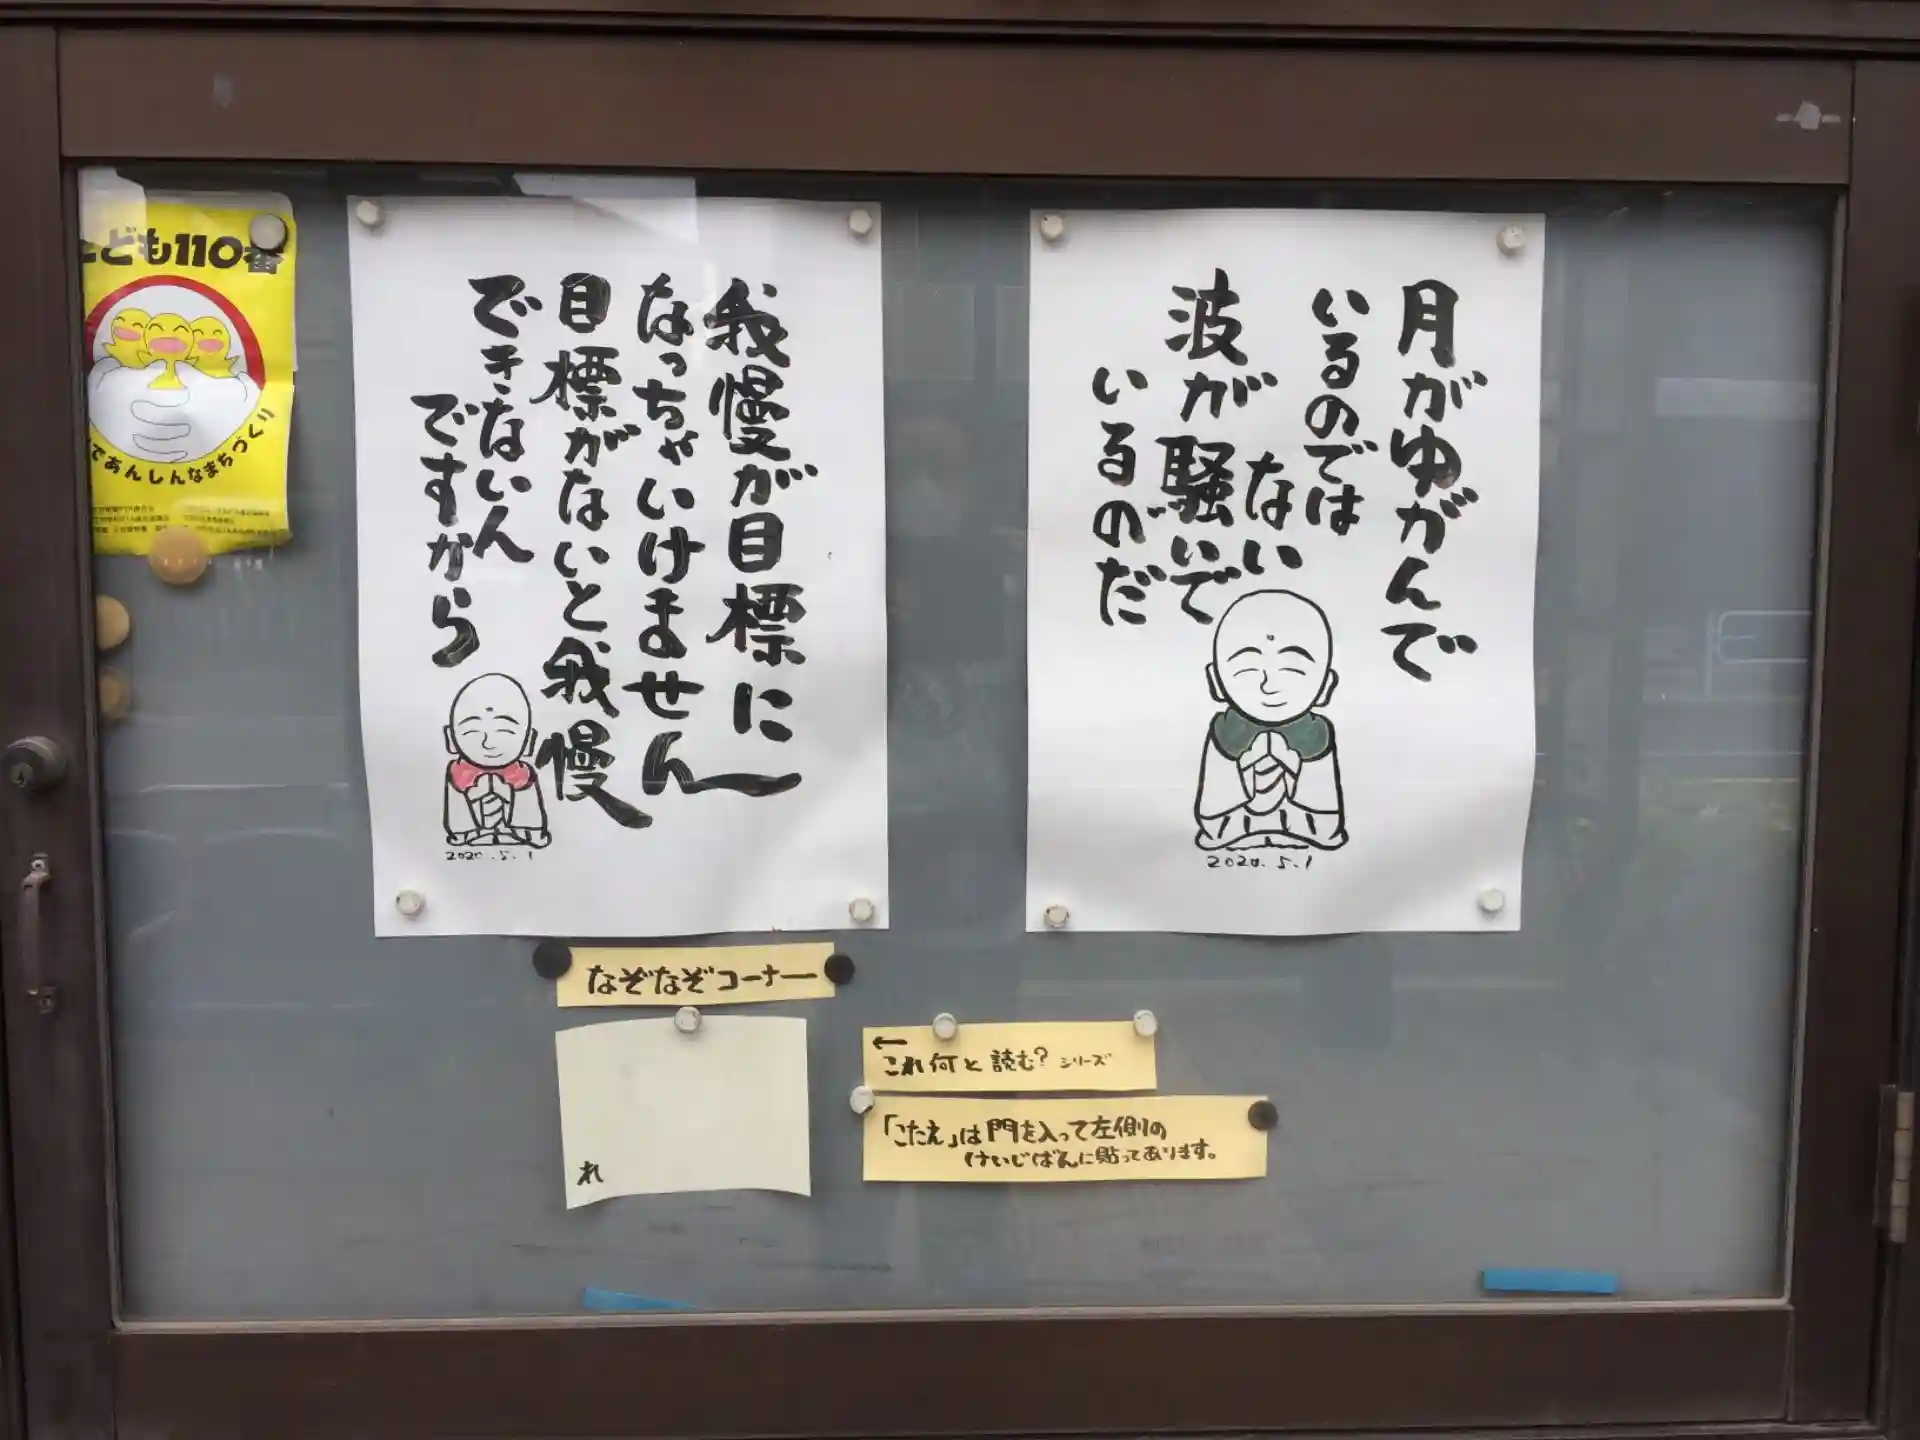 月がゆがんで
いるのでは
ない
波が騒いで
いるのだ
2020.5.1
我慢が目標に
なっちゃいけません
目標がないと我慢
できないん
ですから
2020.5.1
こども110番
であんしんなまちづくり
なぞなぞコーナー
れ
←これ何と読む?シリーズ
「こたえ」は門を入って左側の
けいじばんに貼ってあります。